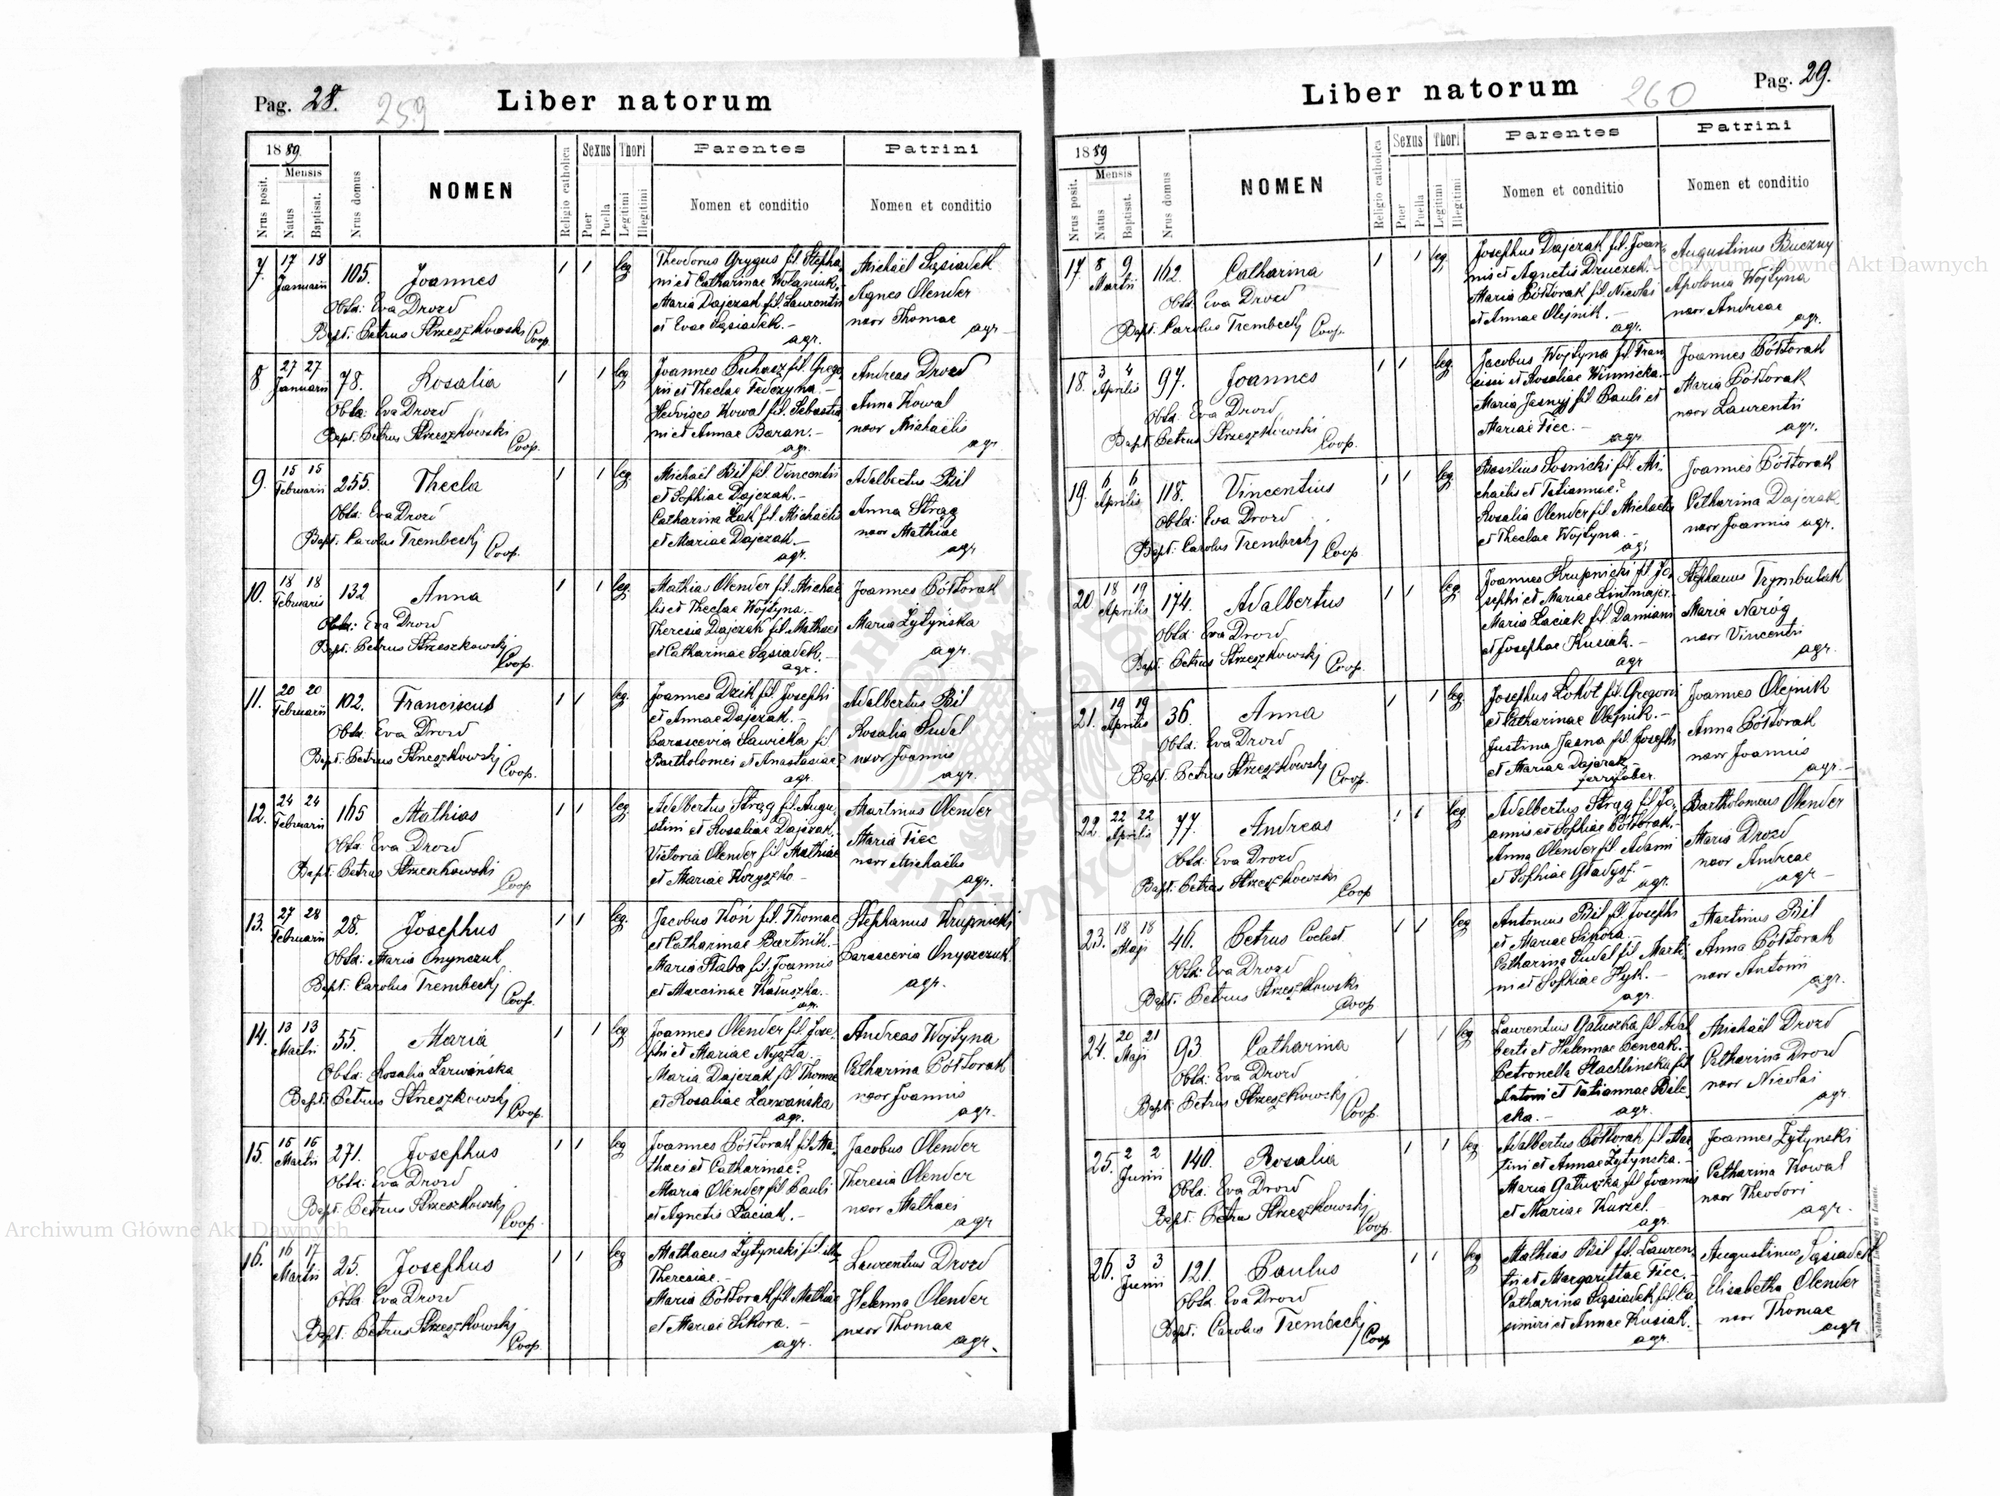 Pag. 28.
259
Liber natorum
1889.
Mensis
Nrus posit.
Natus
Baptisat.
Nrus domus
NOMEN
Religio catholica
Sexus
Puer
Puella
Thori
Legitimi
Illegitimi
Parentes
Nomen et conditio
Patrini
Nomen et conditio
7. 17 18 Januarii 105. Joannes 1 1 leg
Obst: Eva Drozd
Bapt: Petrus Strzeszkowski Coop.
Theodorus Grygus fil. Stepha
ni et Catharinae Wolaniuk.
Maria Dajczak fil. Laurentii
et Evae Sąsiadek.—
agr.
Michaël Sąsiadek
Agnes Olender
uxor Thomae
agr.
8 27 27 Januarii 78. Rosalia 1 1 leg
Obst: Eva Drozd
Bapt. Petrus Strzeszkowski
Coop.
Joannes Puhacz fil. Grego
rii et Theclae Fedczyna.—
Hedviges Kowal fil. Sebastia
ni et Annae Baran.—
agr.
Andreas Drozd
Anna Kowal
uxor Michaëlis
agr
9. 15 15 Februarii 255. Thecla 1 1 leg
Obst: Eva Drozd
Bapt: Carolus Trembecki Coop.
Michaël Bil fil. Vincentii
et Sophiae Dajczak.—
Catharina Żak fil. Michaëlis
et Mariae Dajczak.—
agr.
Adalbertus Bil
Anna Strąg
uxor Mathiae
agr
10. 18 18 Februarii 132 Anna 1 1 leg.
Obst: Eva Drozd
Bapt: Petrus Strzeszkowski
Coop.
Mathias Olender fil. Michaë
lis et Theclae Wojtyna.—
Theresia Dajczak fil. Mathaei
et Catharinae Sąsiadek.—
agr.
Joannes Półtorak
Maria Żytyńska
agr.
11. 20 20 Februarii 102. Franciscus 1 1 leg.
Obst: Eva Drozd
Bapt: Petrus Strzeszkowski
Coop.
Joannes Dzik fil. Josephi
et Annae Dajczak.—
Parascevia Sawicka fil
Bartholomei et Anastasiae?
agr.
Adalbertus Bil
Rosalia Sudal
uxor Joannis
agr.
12. 24 24 Februarii 165 Mathias 1 1 leg
Obst. Eva Drozd
Bapt: Petrus Strzeszkowski
Coop
Adalbertus Strąg fil. Augu
stini et Rosaliae Dajczak.
Victoria Olender fil. Mathiae
et Mariae Koryszko—
Martinus Olender
Maria Tiec
uxor Michaëlis
agr.
13. 27 28 Februarii 28. Josephus 1 1 leg.
Obst: Maria Onynczuk
Bapt: Carolus Trembecki
Coop.
Jacobus Koń fil. Thomae
et Catharinae Bartnik.—
Maria Słaba fil. Joannis
et Marcinae Kałuszka.—
agr.
Stephanus Krupnicki
Parascevia Onyszczuk.
agr.
14. 13 13 Martii 55. Maria 1 1 leg
Obst: Rosalia Zarwańska
Bapt: Petrus Strzeszkowski
Coop.
Joannes Olender fil. Jose
phi et Mariae Nyszta.
Maria Dajczak fil. Thomae
et Rosaliae Zarwańska
agr.
Andreas Wojtyna
Catharina Półtorak
uxor Joannis
agr.
15. 15 16 Martii 271. Josephus 1 1 leg
Obst: Eva Drozd
Bapt: Petrus Strzeszkowski
Coop.
Joannes Półtorak fil. Ma
thaei et Catharinae?
Maria Olender fil Pauli
et Agnetis Łaciak.—
Jacobus Olender
Theresia Olender
uxor Mathaei
agr
16. 16 17 Martii 25. Josephus 1 1 leg
Obst Eva Drozd
Bapt: Petrus Strzeszkowski
Coop.
Mathaeus Żytynski fil. ill
Theresiae.—
Maria Półtorak fil. Mathiae
et Mariae Sikora.—
agr.
Laurentius Drozd
Helenna Olender
uxor Thomae
agr.
Liber natorum
260
Pag. 29.
1889
Mensis
Nrus posit.
Natus
Baptisat.
Nrus domus
NOMEN
Religio catholica
Sexus
Puer
Puella
Thori
Legitimi
Illegitimi
Parentes
Nomen et conditio
Patrini
Nomen et conditio
17. 8 9 Martii 162. Catharina 1 1 leg.
Obst: Eva Drozd
Bapt: Carolus Trembecki Coop.
Josephus Dajczak fil. Joan
nis et Agnetis Druczek.
Maria Półtorak fil. Nicolai
et Annae Olejnik.—
agr.
Augustinus Buczny
Apolonia Wojtyna
uxor Andreae
agr.
18. 3 4 Aprilis 97. Joannes 1 1 leg.
Obst. Eva Drozd
Bapt: Petrus Strzeszkowski
Coop.
Jacobus Wojtyna fil. Fran
cisci et Rosaliae Winnicka.—
Maria Jasnyj fil Pauli et
Mariae Tiec.—
agr.
Joannes Półtorak
Maria Półtorak
uxor Laurentii
agr.
19. 6 6 Aprilis 118. Vincentius 1 1 leg.
Obst: Eva Drozd
Bapt: Carolus Trembecki
Coop.
Basilius Sosnicki fil. Mi
chaëlis et Tatiannae?
Rosalia Olender fil. Michaëlis
et Theclae Wojtyna.—
agr
Joannes Półtorak
Catharina Dajczak
uxor Joannis agr.
20 18 19 Aprilis 174. Adalbertus 1 1 leg.
Obst: Eva Drozd
Bapt. Petrus Strzeszkowski
Coop.
Joannes Krupnicki fil. Jo
sephi et Mariae Lintmajer.
Maria Łaciak fil Damiani
et Josephae Kusiak.—
agr
Stephanus Trymbulak
Maria Naróg
uxor Vincentii
agr.
21. 19 19 Aprilis 36. Anna 1 1 leg.
Obst: Eva Drozd
Bapt: Petrus Strzeszkowski
Coop.
Josephus Łokot fil. Gregorii
et Catharinae Olejnik.—
Justina Jasna fil. Josephi
et Mariae Dajczak
Joannes Olejnik
Anna Półtorak
uxor Joannis
agr.—
22 22 22 Aprilis 77. Andreas 1 1 leg.
Obst: Eva Drozd
Bapt: Petrus Strzeszkowski
Coop
Adalbertus Strąg fil Jo
annis et Sophiae Półtorak.—
Anna Olender fil Adami
et Sophiae Gładysz.—
agr.
Bartholomeus Olender
Maria Drozd
uxor Andreae
agr—
23. 18 18 Maji 46. Petrus Coelest. 1 1 leg
Obst: Eva Drozd
Bapt: Petrus Strzeszkowski
Coop
Antonius Bil fil Josephi
et Mariae Sikora.—
Catharina Sudal fil Marti
ni et Sophiae Hyk.—
agr.
Martinus Bil
Anna Półtorak
uxor Antonii
agr.
24. 20 21 Maji 93 Catharina 1 1 leg
Obst: Eva Drozd
Bapt: Petrus Strzeszkowski
Coop.
Laurentius Gałuszka fil Adal
berti et Helennae Bencak.—
Petronella Stachlinska fil
Antoni et Tatiannae Bile
cka.—
agr.
Michaël Drozd
Catharina Drozd
uxor Nicolai
agr.
25. 2 2 Junii 140. Rosalia 1 1 leg
Obst. Eva Drozd
Bapt: Petrus Strzeszkowski
Coop.
Adalbertus Półtorak fil Mar
tini et Annae Żytynska.—
Maria Gałuszka fil Joannis
et Mariae Kurzel.—
agr.
Joannes Żytynski
Catharina Kowal
uxor Theodori
agr.
26. 3 3 Junii 121. Paulus 1 1 leg
Obst. Eva Drozd
Bapt: Carolus Trembecki
Coop
Mathias Bil fil. Lauren
tii et Margarittae Tiec.—
Catharina Sąsiadek fil. Ca
simiri et Annae Kusiak.
agr.
Augustinus Sąsiadek
Elisabetha Olender
uxor Thomae
agr
Archiwum Główne Akt Dawnych
Archiwum Główne Akt Dawnych